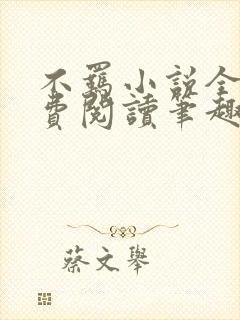 不羈小說全
費閱讀筆趣
蔡文舉